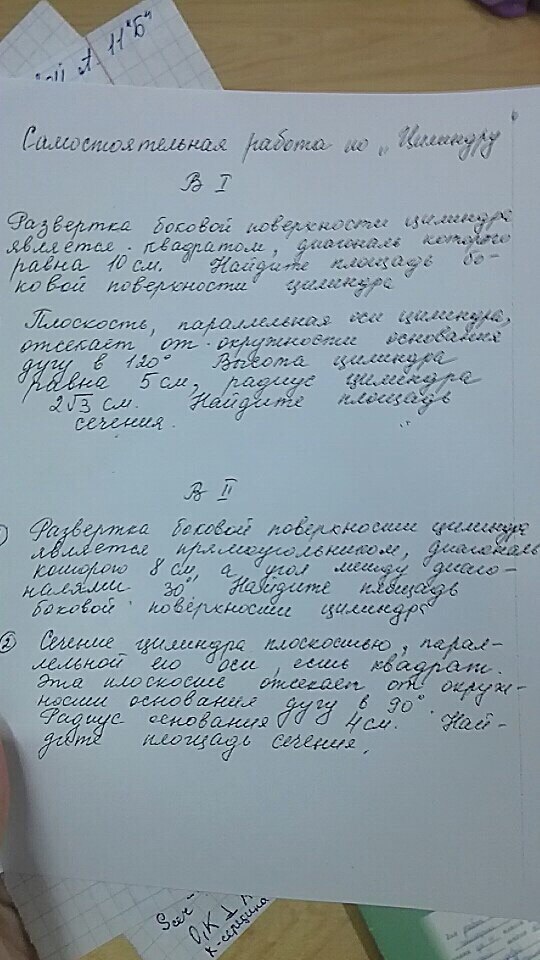 11 "Б"
Самостоятельная работа по "Цилиндру
В I
Развертка боковой поверхности цилиндра
является квадратом, диагональ которого
равна 10 см. Найдите площадь бо-
ковой поверхности цилиндра
Плоскость, параллельная оси цилиндра,
отсекает от окружности основания
дугу в 120° Высота цилиндра
равна 5 см, радиус цилиндра
2√3 см. Найдите площадь
сечения.
В II
Развертка боковой поверхности цилиндра
является прямоугольником, диагональ
которого 8 см, а угол между диаго-
налями 30°. Найдите площадь
боковой поверхности цилиндра
② Сечение цилиндра плоскостью, парал-
лельной его оси, есть квадрат.
Эта плоскость отсекает от окруж-
ности основания дугу в 90°.
Радиус основания 4 см. Най-
дите площадь сечения.
Sсеч
O₁K ⊥
K-середина